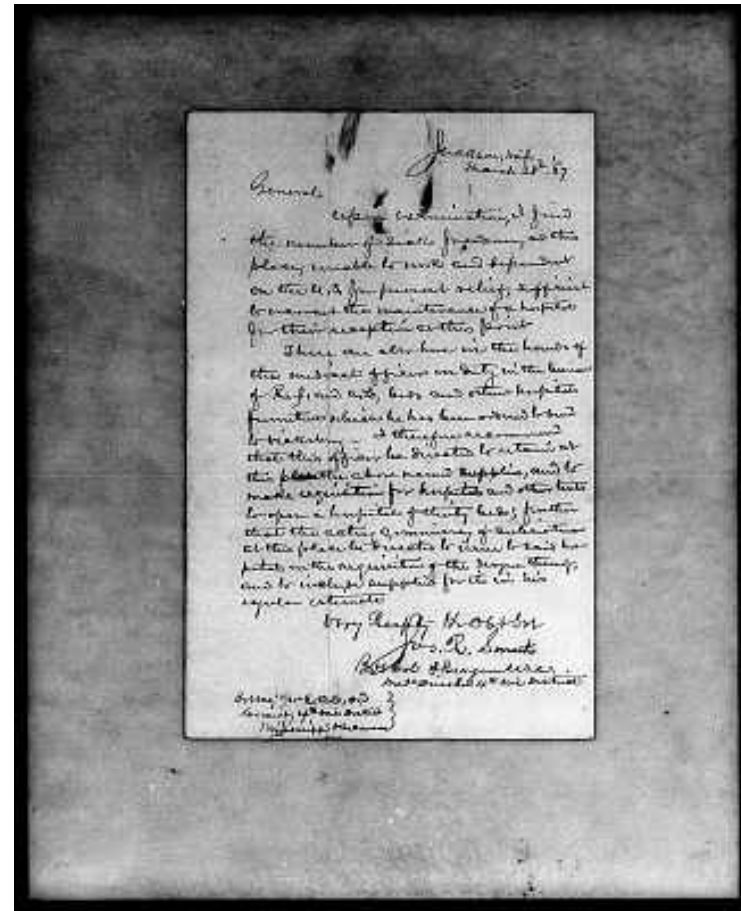 Jackson, Miss.
March 28th '67
General
Upon examination, I find
the number of sick freedmen, at this
place, unable to work and dependent
on the U.S. for present relief, sufficient
to warrant the maintenance of a hospital
for their reception at this point
There are also here in the hands of
the medical officer on duty in the bureau
of Ref. and beds and other hospital
furniture which he has been ordered to send
to Vicksburg. I therefore recommend
that this officer be directed to retain at
this place the above named supplies, and to
make requisition for hospital and other tents
to open a hospital of thirty beds; further
that the acting commissary of subsistence
at this place be directed to issue to said hos-
pital on the requisition of the Surgeon
and to include supplies for the in his
regular estimate
Very Respty Yr Obt Svt
Jos. R. Smith
Surgeon U.S.A.
Med. Director 4th Mil District
4th Mil District
Mississippi & Arkansas